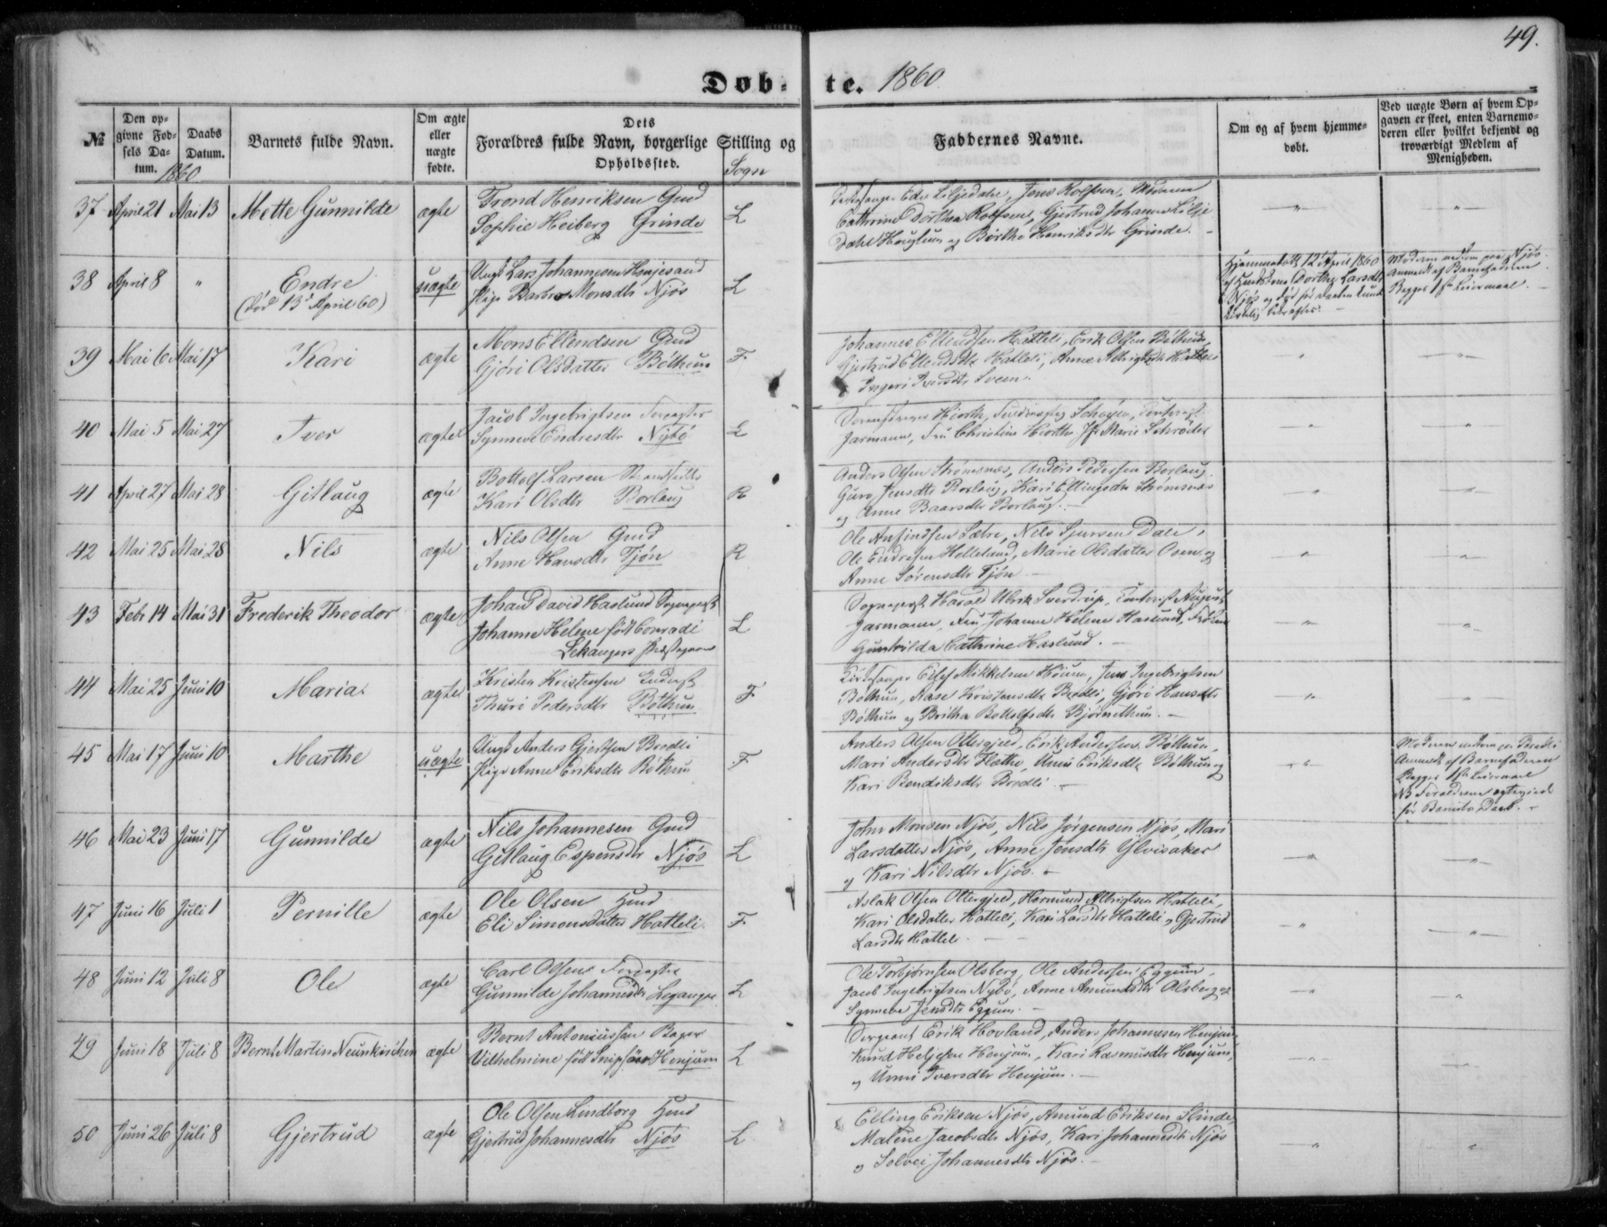 49.
Døb- te. 1860
№
Den op-
givne Fød-
sels Da-
tum.
Daabs
Datum.
1860
Barnets fulde Navn.
Om ægte
eller
uægte
fødte.
Dets
Forældres fulde Navn, borgerlige Stilling og
Opholdssted.
Sogn
Faddernes Navne.
Om og af hvem hjemme-
døbt.
Ved uægte Børn af hvem Op-
gaven er skeet, enten Barnemo-
deren eller hvilket bekjendt og
troværdigt Medlem af
Menigheden.
37 April 21 Mai 13 Mette Gunnilde ægte
Trond Henriksen Gmd
Sophie Heiberg Grinde L
Jens Rolfsen,
Cathrine Dorthea Rolfsen, Gjertrud Johanne Lilje
dahl Houglum og Børthe Henriksdtr Grinde.
38 April 8 " Endre
(død 13de April 60) uægte
Ungk Lars Johannesen Henjesand
Pige Barbro Monsdtr Njøs L
Hjemmedøbt 12 April 1860
Dorthe Larsdtr
Njøs og død
Moderen paa Njøs.
Anmeldt af Barnefaderen
Begges 1ste Leiermaal.
39 Mai 6 Mai 17 Kari ægte
Mons Ellendsen Gmd
Gjøri Olsdatter Bøthun F
Johannes Ellendsen Hatteli, Erik Olsen Bøthun,
Gjertrud Ellendsdtr Hatteli, Anne Hatteli
Ingeri Iversdtr Sveen.
40 Mai 5 Mai 27 Iver ægte
Jacob Ingebrigtsen Forpagter
Synneve Endresdtr Nybø L
Sorenskriver Hiorth,
Jarmann, Fru Christine Hiorth, Jfr Marie Schrøder
41 April 27 Mai 28 Gitlaug ægte
Bottolf Larsen
Kari Olsdtr Borlaug R
Anders Olsen Strømsnæs, Anders Pedersen Borlaug
Guro Jensdtr Borlaug, Kari Ellingsdtr Strømsnæs
og Anne Baarsdtr Borlaug.
42 Mai 25 Mai 28 Nils ægte
Nils Olsen Gmd
Anne Hansdtr Tjøn R
Ole Anfindsen Sætre, Nils Sjursen Dale,
Ole Endresen Hellelund, Marie Olsdatter Osen og
Anne Sørensdtr Tjøn
43 Febr 14 Mai 31 Frederik Theodor ægte
Johan David Haslund Sognepræst
Johanne Helene født Conradi
Lekangers Præstegaard L
Sognepræst Harald Ulrik Sverdrup, August
Jarmann, Fru Johanne Helene Haslund, Frøken
Gunhilda Cathrine Haslund.
44 Mai 25 Juni 10 Maria ægte
Kristen Kristensen
Thuri Pedersdtr Bøthun F
Kirkesanger Eilef Mikkelsen Hiium, Jens Ingebrigtsen
Bøthun, Aase Kristensdtr Bredli, Gjøri Hansdtr
Bøthun og Britha Bottolfsdtr Bjørnethun.
45 Mai 17 Juni 10 Marthe uægte
Ungk Anders Gjertsen Bredli
Pige Anne Eriksdtr Bøthun F
Anders Olsen Ottergjed, Erik Andersen Bøthun,
Mari Andersdtr Flathe, Unni Eriksdtr Bøthun og
Kari Bendiksdtr Bredli
Moderen paa Bredli
Anmeldt af Barnefaderen
Begges 1ste Leiermaal
NB Forældrene ægteviede
før Barnets Daab.
46 Mai 23 Juni 17 Gunnilde ægte
Nils Johannesen Gmd
Gitlaug Espensdtr Njøs L
John Monsen Njøs, Nils Jørgensen Njøs, Mari
Larsdatter Njøs, Anne Jensdtr Ylvisaker
og Kari Nilsdtr Njøs.
47 Juni 16 Juli 1 Pernille ægte
Ole Olsen Hmd
Eli Simonsdatter Hatteli F
Aslak Olsen Ottergjed, Hermund Albrigtsen Hatteli,
Kari Olsdatter Hatteli, Kari Larsdtr Hatteli og Gjertrud
Larsdtr Hatteli
48 Juni 12 Juli 8 Ole ægte
Carl Olsen Forpagter
Gunnilde Johannesdtr Leganger L
Ole Torbjørnsen Olsberg, Ole Andersen Eggum,
Jacob Ingebrigtsen Nybø, Anne Amundsdtr Olsberg og
Synneva Jensdtr Eggum.
49 Juni 18 Juli 8 Bernt Martin Neunkirchen ægte
Bernt Antoniussen Bager
Vilhelmine født Henjum L
Sergeant Erik Hovland, Anders Johannesen Henjum,
Knud Helgesen Henjum, Kari Rasmusdtr Henjum,
og Unni Iversdtr Henjum.
50 Juni 26 Juli 8 Gjertrud ægte
Ole Olsen Lindborg Hmd
Gjertrud Johannesdtr Njøs L
Elling Eriksen Njøs, Amund Eriksen Slinde,
Malene Jacobsdtr Njøs, Kari Johannesdtr Njøs
og Solvei Johannesdtr Njøs.